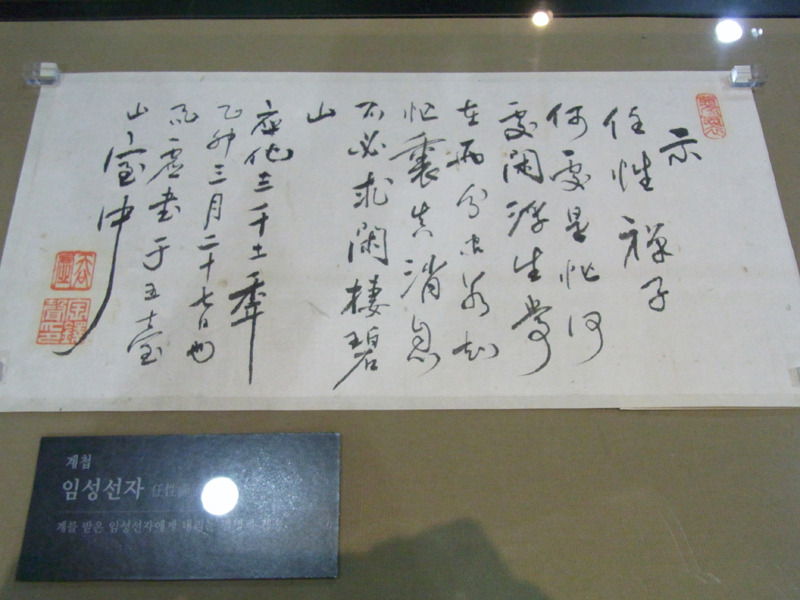 示
任性禪子
何處是忙何
處閑浮生常
在兩分間若知
忙裏真消息
不必求閑棲碧
山
應化三千二年
乙卯三月二十七日也
呑虛書于五臺
山室中
呑虛
계첩
임성선자 任性
계를 받은 임성선자에게 내리는